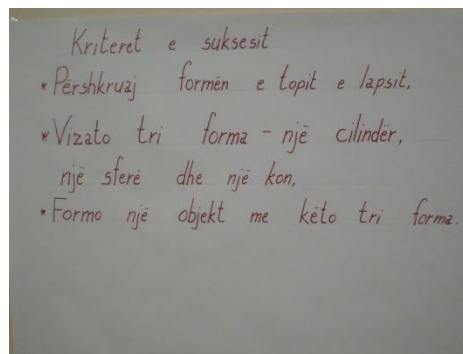 Kriteret e suksesit
* Përshkruaj formën e topit e lapsit,
* Vizato tri forma - një cilindër,
një sferë dhe një kon,
* Formo një objekt me këto tri forma.